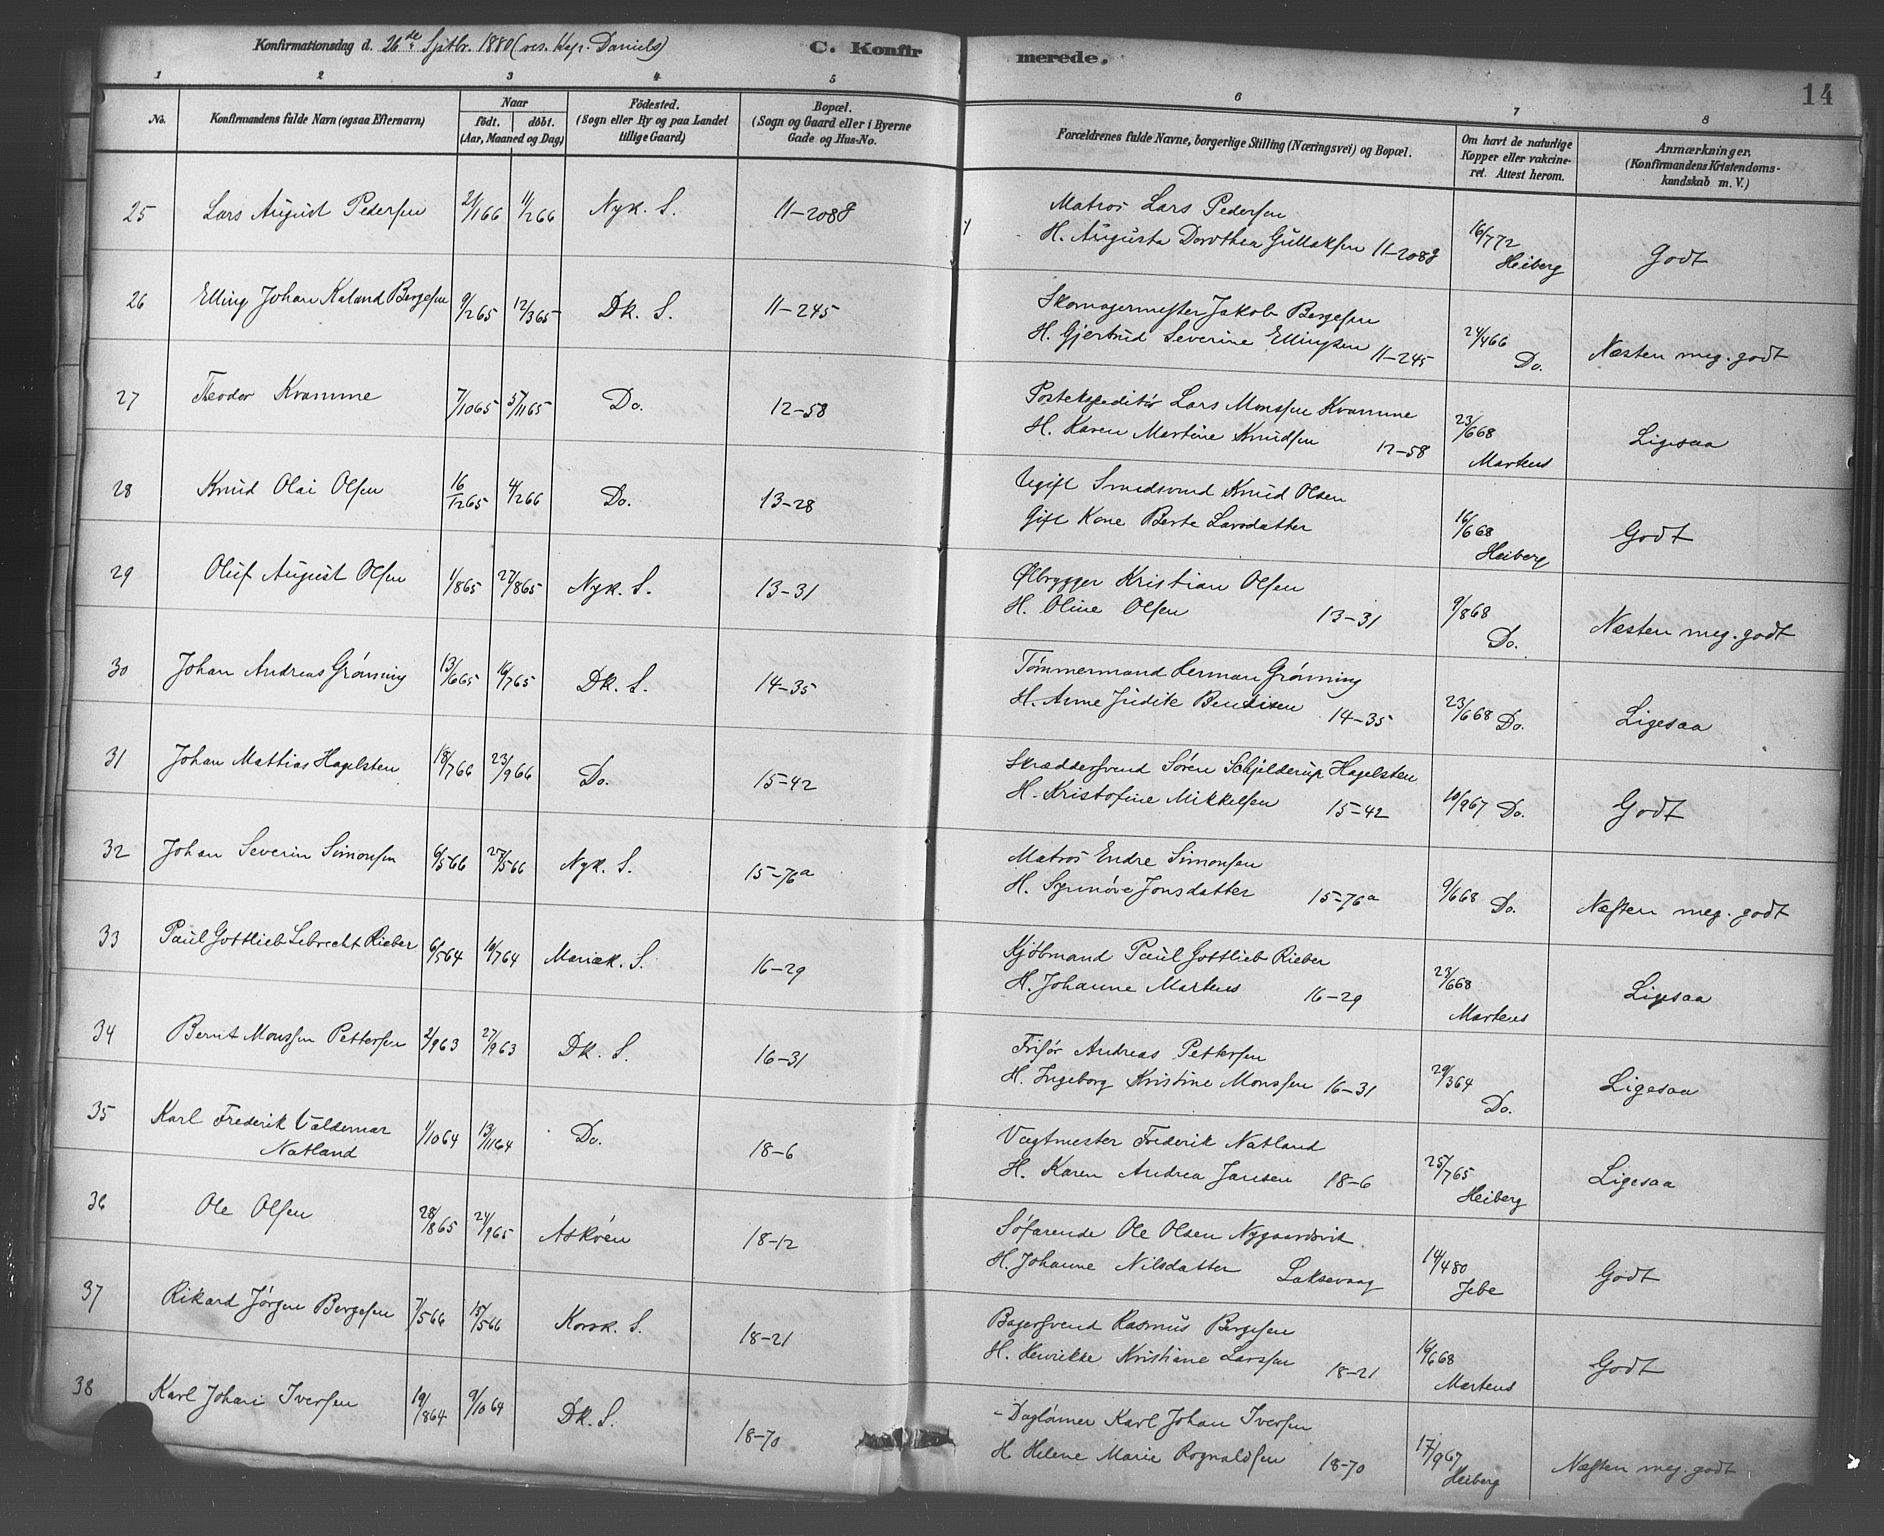 Konfirmationsdag d. 26de Sptbr. 1880 (res. Kap. Daniels)
C. Konfirmerede.
14
1 2 3 4 5 6 7 8
No. Konfirmandens fulde Navn (ogsaa Efternavn) Naar födt. döbt. (Aar, Maaned og Dag) Födested. (Sogn eller By og paa Landet tillige Gaard) Bopæl. (Sogn og Gaard eller i Byerne Gade og Hus-No. Forældrenes fulde Navne, borgerlige Stilling (Næringsvei) og Bopæl. Om havt de naturlige Kopper eller vakcineret. Attest herom. Anmærkninger, (Konfirmandens Kristendomskundskab m. V.)
25 Lars August Pedersen 21/1 66 11/2 66 Nyk. S. 11-208g Matros Lars Pedersen 16/7 72
H. Augusta Dorothea Gullaksen 11-208g Heiberg Godt
26 Elling Johan Kaland Bergesen 9/2 65 12/3 65 Dk. S. 11-245 Skomagermester Jakob Bergesen 24/4 66
H. Gjertrud Severine Ellingsen 11-245 Do. Næsten meg. godt
27 Teodor Kvamme 7/10 65 5/11 65 Do. 12-58 Postekspeditör Lars Monssen Kvamme 23/6 68
H. Karen Martine Knudsen 12-58 Martens Ligesaa
28 Knud Olai Olsen 16/12 65 4/2 66 Do. 13-28 Ugift Smedsvend Knud Olsen 16/6 68
Gift Kone Berte Larsdatter Heiberg Godt
29 Oluf August Olsen 1/8 65 27/8 65 Nyk. S. 13-31 Ølbrygger Kristian Olsen 9/8 68
H. Oline Olsen 13-31 Do. Næsten meg. godt
30 Johan Andreas Grönning 13/6 65 16/7 65 Dk. S. 14-35 Tömmermand Herman Grönning 23/6 68
H. Anne Judite Bendixen 14-35 Do. Ligesaa
31 Johan Mattias Hagelsten 18/7 66 23/9 66 Do. 15-42 Skræddersvend Sören Schjelderup Hagelsten 10/9 67
H. Kristofine Mikkelsen 15-42 Do. Godt
32 Johan Severin Simonsen 6/5 66 25/5 66 Nyk. S. 15-76a Matros Endre Simonsen 9/6 68
H. Synnöve Jonsdatter 15-76a Do. Næsten meg. godt
33 Paul Gottlieb Lebrecht Rieber 6/5 64 10/7 64 Mariæk. S. 16-29 Kjöbmand Paul Gottlieb Rieber 23/6 68
H. Johanne Martens 16-29 Martens Ligesaa
34 Bernt Monssen Pettersen 2/9 63 27/9 63 Dk. S. 16-31 Frisör Andreas Pettersen 29/3 64
H. Ingeborg Kristine Monssen 16-31 Do. Ligesaa
35 Karl Frederik Valdemar Natland 1/10 64 13/11 64 Do. 18-6 Vægtmester Frederik Natland 25/7 65
H. Karen Andrea Jansen 18-6 Heiberg Ligesaa
36 Ole Olsen 28/8 65 24/9 65 Asköen 18-12 Söfarende Ole Olsen Nygaardsvik 14/4 80
H. Johanne Nilsdatter Laksevaag Jebe Godt
37 Rikard Jörgen Bergesen 7/5 66 15/5 66 Korsk. S. 18-21 Bagersvend Rasmus Bergesen 16/6 68
H. Henrikke Kristiane Larssen 18-21 Martens Godt
38 Karl Johan Iversen 19/8 64 9/10 64 Dk. S. 18-70 Daglönner Karl Johan Iversen 17/9 67
H Helene Marie Rognaldsen 18-70 Heiberg Næsten meg. godt